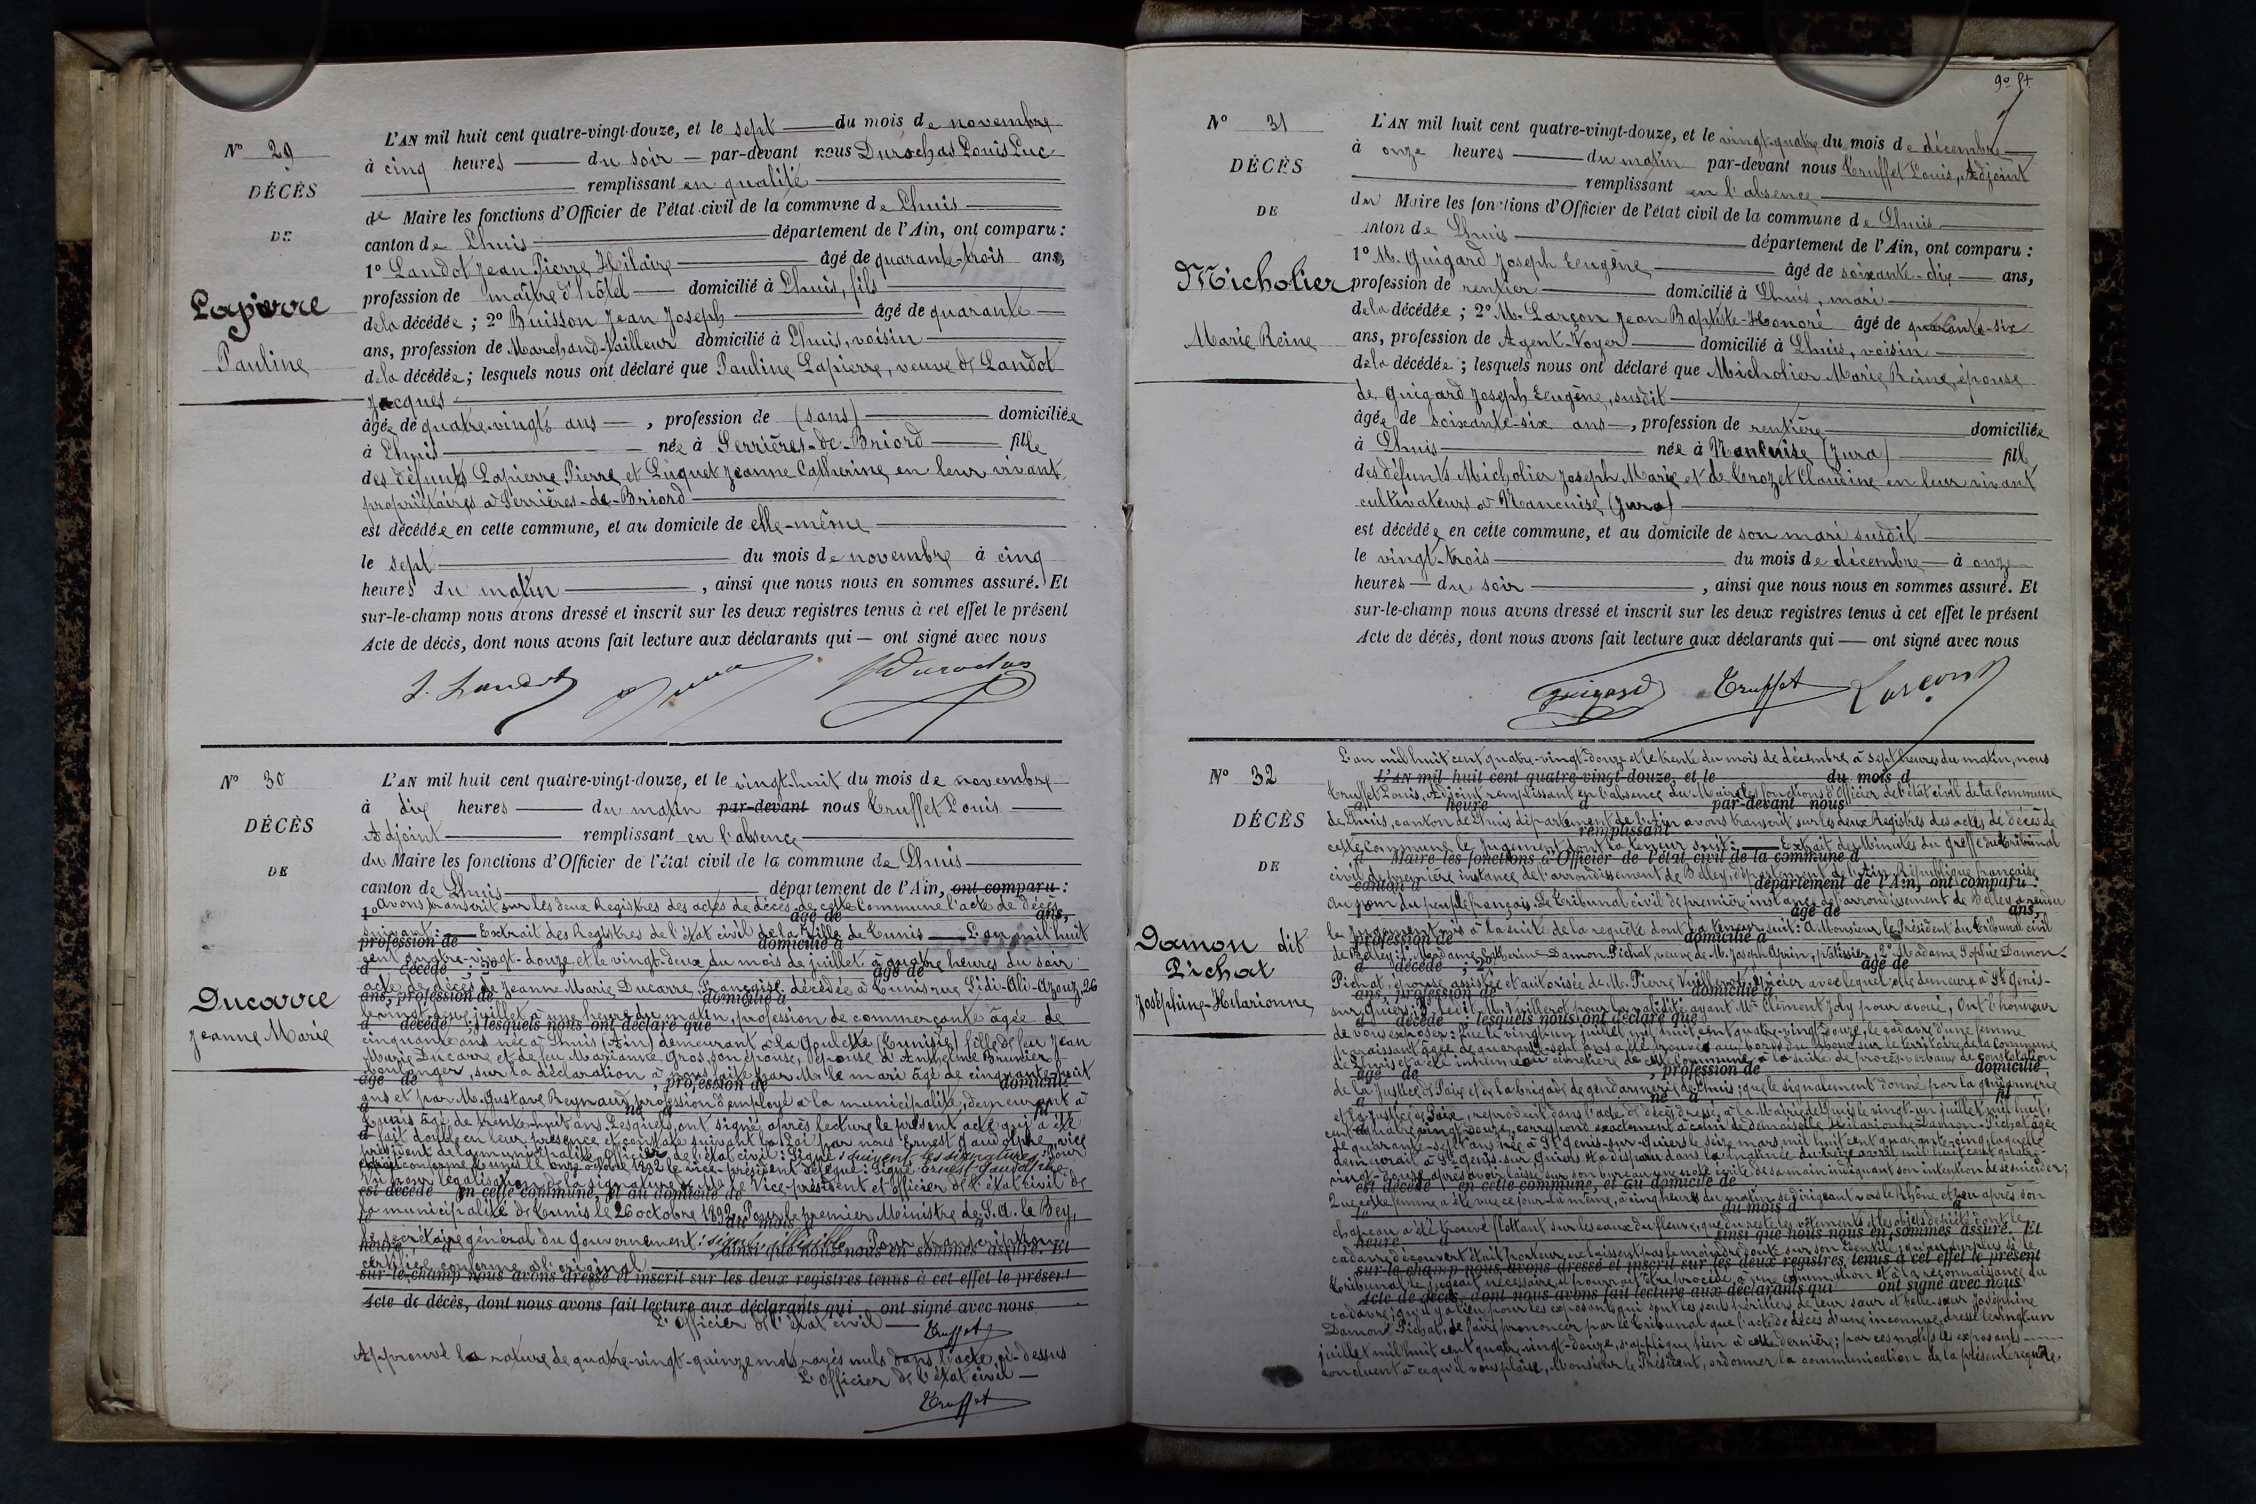 N° 29
DÉCÈS
DE
Lapierre
Pauline
L'AN mil huit cent quatre-vingt-douze, et le sept du mois de novembre
à cinq heures du soir par-devant nous Durochas Louis Luc
remplissant en qualité
de Maire les fonctions d'Officier de l'état civil de la commune de Lhuis
canton de Lhuis département de l'Ain, ont comparu :
1° Landot Jean Pierre Hilaire âgé de quarante-trois ans,
profession de maître d'hôtel domicilié à Lhuis, fils
de la décédée ; 2° Buisson Jean Joseph âgé de quarante
ans, profession de Marchand-tailleur domicilié à Lhuis, voisin
de la décédée ; lesquels nous ont déclaré que Pauline Lapierre, veuve de Landot
Jacques
âgée de quatre-vingts ans , profession de (sans) domiciliée
à Lhuis née à Serrières-de-Briord fille
des défunts Lapierre Pierre et Luquet Jeanne Catherine en leur vivant
propriétaires à Serrières-de-Briord
est décédée en cette commune, et au domicile de elle-même
le sept du mois de novembre à cinq
heures du matin , ainsi que nous nous en sommes assuré. Et
sur-le-champ nous avons dressé et inscrit sur les deux registres tenus à cet effet le présent
Acte de décès, dont nous avons fait lecture aux déclarants qui — ont signé avec nous
J. Landot Durochas
N° 30
DÉCÈS
DE
Ducarre
Jeanne Marie
L'AN mil huit cent quatre-vingt-douze, et le vingt-huit du mois de novembre
à dix heures du matin par-devant nous Truffet Louis
Adjoint remplissant en l'absence
du Maire les fonctions d'Officier de l'état civil de la commune de Lhuis
canton de Lhuis département de l'Ain, ont comparu :
Avons transcrit sur les deux Registres des actes de décès de cette Commune l'acte de décès
suivant : Extrait des Registres de l'état civil de la Ville de Tunis L'an mil huit
cent quatre-vingt-douze et le vingt-deux du mois de juillet à quatre heures du soir
acte de décès de Jeanne Marie Ducarre, Française, décédée à Tunis rue Sidi-Ali-Azouz, 26
juillet à une heure du matin, profession de commerçante âgée de
cinquante ans née à Lhuis (Ain) demeurant à la Goulette (Tunisie) fille de feu Jean
Marie Ducarre et de feu Marianne Gros, son épouse, épouse d'Anthelme Brunier
boulanger, sur la déclaration à nous faite par Mr le mari âgé de cinquante-huit
ans et par M. Gustave Reynaud, profession d'employé à la municipalité, demeurant à
Tunis âgé de trente-huit ans. Lesquels ont signé après lecture le présent acte qui a été
fait double en leur présence et constaté suivant la Loi par nous Ernest Gaudolphe, vice
président de la municipalité Officier de l'état civil : Signé : suivent les signatures : Pour
extrait conforme Tunis le onze octobre 1892 le vice-président délégué : Signé Ernest Gaudolphe
Vu pour légalisation de la signature de Mr le Vice-président et officier de l'état civil de
la municipalité de Tunis le 26 octobre 1892. Pour le premier Ministre de S. A. le Bey,
le secrétaire général du Gouvernement : signé : illisible Pour transcription
certifiée conforme à l'original
sur-le-champ nous avons dressé et inscrit sur les deux registres tenus à cet effet le présent
Acte de décès, dont nous avons fait lecture aux déclarants qui ont signé avec nous
L'Officier de l'état civil
Truffet
Approuvé la rature de quatre-vingt-quinze mots rayés nuls dans l'acte ci-dessus
L'Officier de l'état civil
Truffet
N° 31
DÉCÈS
DE
Micholier
Marie Reine
L'AN mil huit cent quatre-vingt-douze, et le vingt-quatre du mois de décembre
à onze heures du matin par-devant nous Truffet Louis, Adjoint
remplissant en l'absence
du Maire les fonctions d'Officier de l'état civil de la commune de Lhuis
canton de Lhuis département de l'Ain, ont comparu :
1° M. Guigard Joseph Eugène âgé de soixante-dix ans,
profession de rentier domicilié à Lhuis, mari
de la décédée ; 2° M. Larçon Jean Baptiste-Honoré âgé de quarante-six
ans, profession de Agent-Voyer domicilié à Lhuis, voisin
de la décédée ; lesquels nous ont déclaré que Micholier Marie Reine, épouse
de Guigard Joseph Eugène, susdit
âgée de soixante-six ans , profession de rentière domiciliée
à Lhuis née à Nancuise (Jura) fille
des défunts Micholier Joseph Marie et de Crozet Claudine en leur vivant
cultivateurs à Nancuise (Jura)
est décédée en cette commune, et au domicile de son mari susdit
le vingt-trois du mois de décembre à onze
heures du soir , ainsi que nous nous en sommes assuré. Et
sur-le-champ nous avons dressé et inscrit sur les deux registres tenus à cet effet le présent
Acte de décès, dont nous avons fait lecture aux déclarants qui — ont signé avec nous
Guigard Truffet Larçon
N° 32
DÉCÈS
DE
Damon dit
Pichat
Joséphine-Hilarionne
L'an mil huit cent quatre-vingt-douze et le trente du mois de décembre à sept heures du matin, nous
Truffet Louis, Adjoint remplissant en l'absence du Maire les fonctions d'officier de l'état civil de la Commune
de Lhuis, canton de Lhuis département de l'Ain avons transcrit sur les deux Registres des actes de décès de
cette Commune le jugement dont la teneur suit : Extrait des Minutes du greffe du Tribunal
civil de première instance de l'arrondissement de Belley, département de l'Ain, République française
Au nom du peuple français. Le Tribunal civil de première instance de l'arrondissement de Belley a rendu
le jugement mis à la suite de la requête dont la teneur suit : A Monsieur le Président du Tribunal civil
de Belley : 1° Madame Catherine Damon-Pichat, veuve de M. Joseph Aprin, pâtissier, 2° Madame Sophie Damon-
Pichat, épouse assistée et autorisée de M. Pierre Vuillerot, épicier avec lequel elle demeure à St Genis-
sur-Guiers ; 3° Ledit M. Vuillerot pour la validité, ayant Me Clément Joly pour avoué, Ont l'honneur
de vous exposer : Que le vingt-un juillet mil huit cent quatre-vingt-douze, le cadavre d'une femme
paraissant âgée de quarante-sept ans a été trouvé au bord du Rhône sur le territoire de la Commune
de Lhuis et a été inhumé au cimetière de cette Commune, à la suite de procès-verbaux de constatation
de la Justice de Paix et de la brigade de gendarmerie de Lhuis ; que le signalement donné par la gendarmerie
et la justice de Paix, reproduit dans l'acte de décès dressé à la Mairie de Lhuis le vingt-un juillet mil huit
cent quatre-vingt-douze, correspond exactement à celui de demoiselle Hilarionne Damon-Pichat âgée
de quarante-sept ans née à St Genis-sur-Guiers le seize mars mil huit cent quarante-cinq, laquelle
demeurait à St Genis-sur-Guiers et a disparu dans la matinée du treize avril mil huit cent quatre-
vingt-douze, après avoir laissé sur son bureau une note écrite de sa main indiquant son intention de se suicider ;
Que cette femme a été vue ce jour-là même, à cinq heures du matin se dirigeant vers le Rhône et peu après son
chapeau a été trouvé flottant sur les eaux du fleuve, que du reste les vêtements et les objets de piété dont le
cadavre découvert était porteur ne laissent pas le moindre doute sur son identité, qu'au surplus si le
Tribunal le jugeait nécessaire il pourrait être procédé à une exhumation et à la reconnaissance du
cadavre ; qu'il y a lieu pour les exposants qui sont les seuls héritiers de leur sœur et belle-sœur Joséphine
Damon-Pichat, de faire prononcer par le Tribunal que l'acte de décès d'une inconnue, dressé le vingt-un
juillet mil huit cent quatre-vingt-douze, s'applique bien à cette dernière ; par ces motifs les exposants
concluent à ce qu'il vous plaise, Monsieur le Président, ordonner la communication de la présente requête,